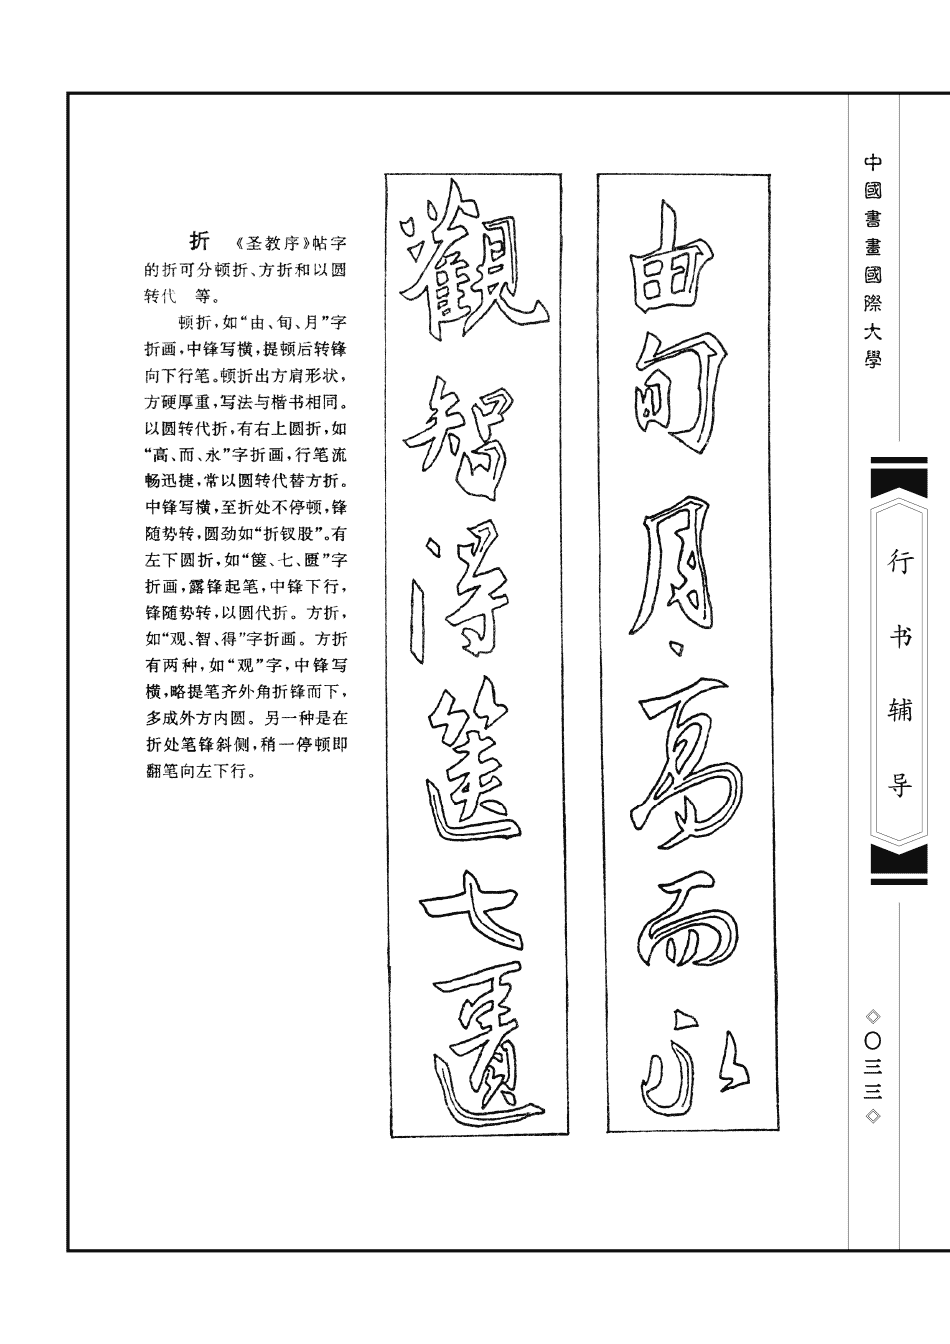 中國書畫國際大學
行书辅导
〇三三
由旬月高而永
觀智得篋七匱
折 《圣教序》帖字
的折可分顿折、方折和以圆
转代 等。
顿折，如“由、旬、月”字
折画，中锋写横，提顿后转锋
向下行笔。顿折出方肩形状，
方硬厚重，写法与楷书相同。
以圆转代折，有右上圆折，如
“高、而、永”字折画，行笔流
畅迅捷，常以圆转代替方折。
中锋写横，至折处不停顿，锋
随势转，圆劲如“折钗股”。有
左下圆折，如“箧、七、匮”字
折画，露锋起笔，中锋下行，
锋随势转，以圆代折。方折，
如“观、智、得”字折画。方折
有两种，如“观”字，中锋写
横，略提笔齐外角折锋而下，
多成外方内圆。另一种是在
折处笔锋斜侧，稍一停顿即
翻笔向左下行。